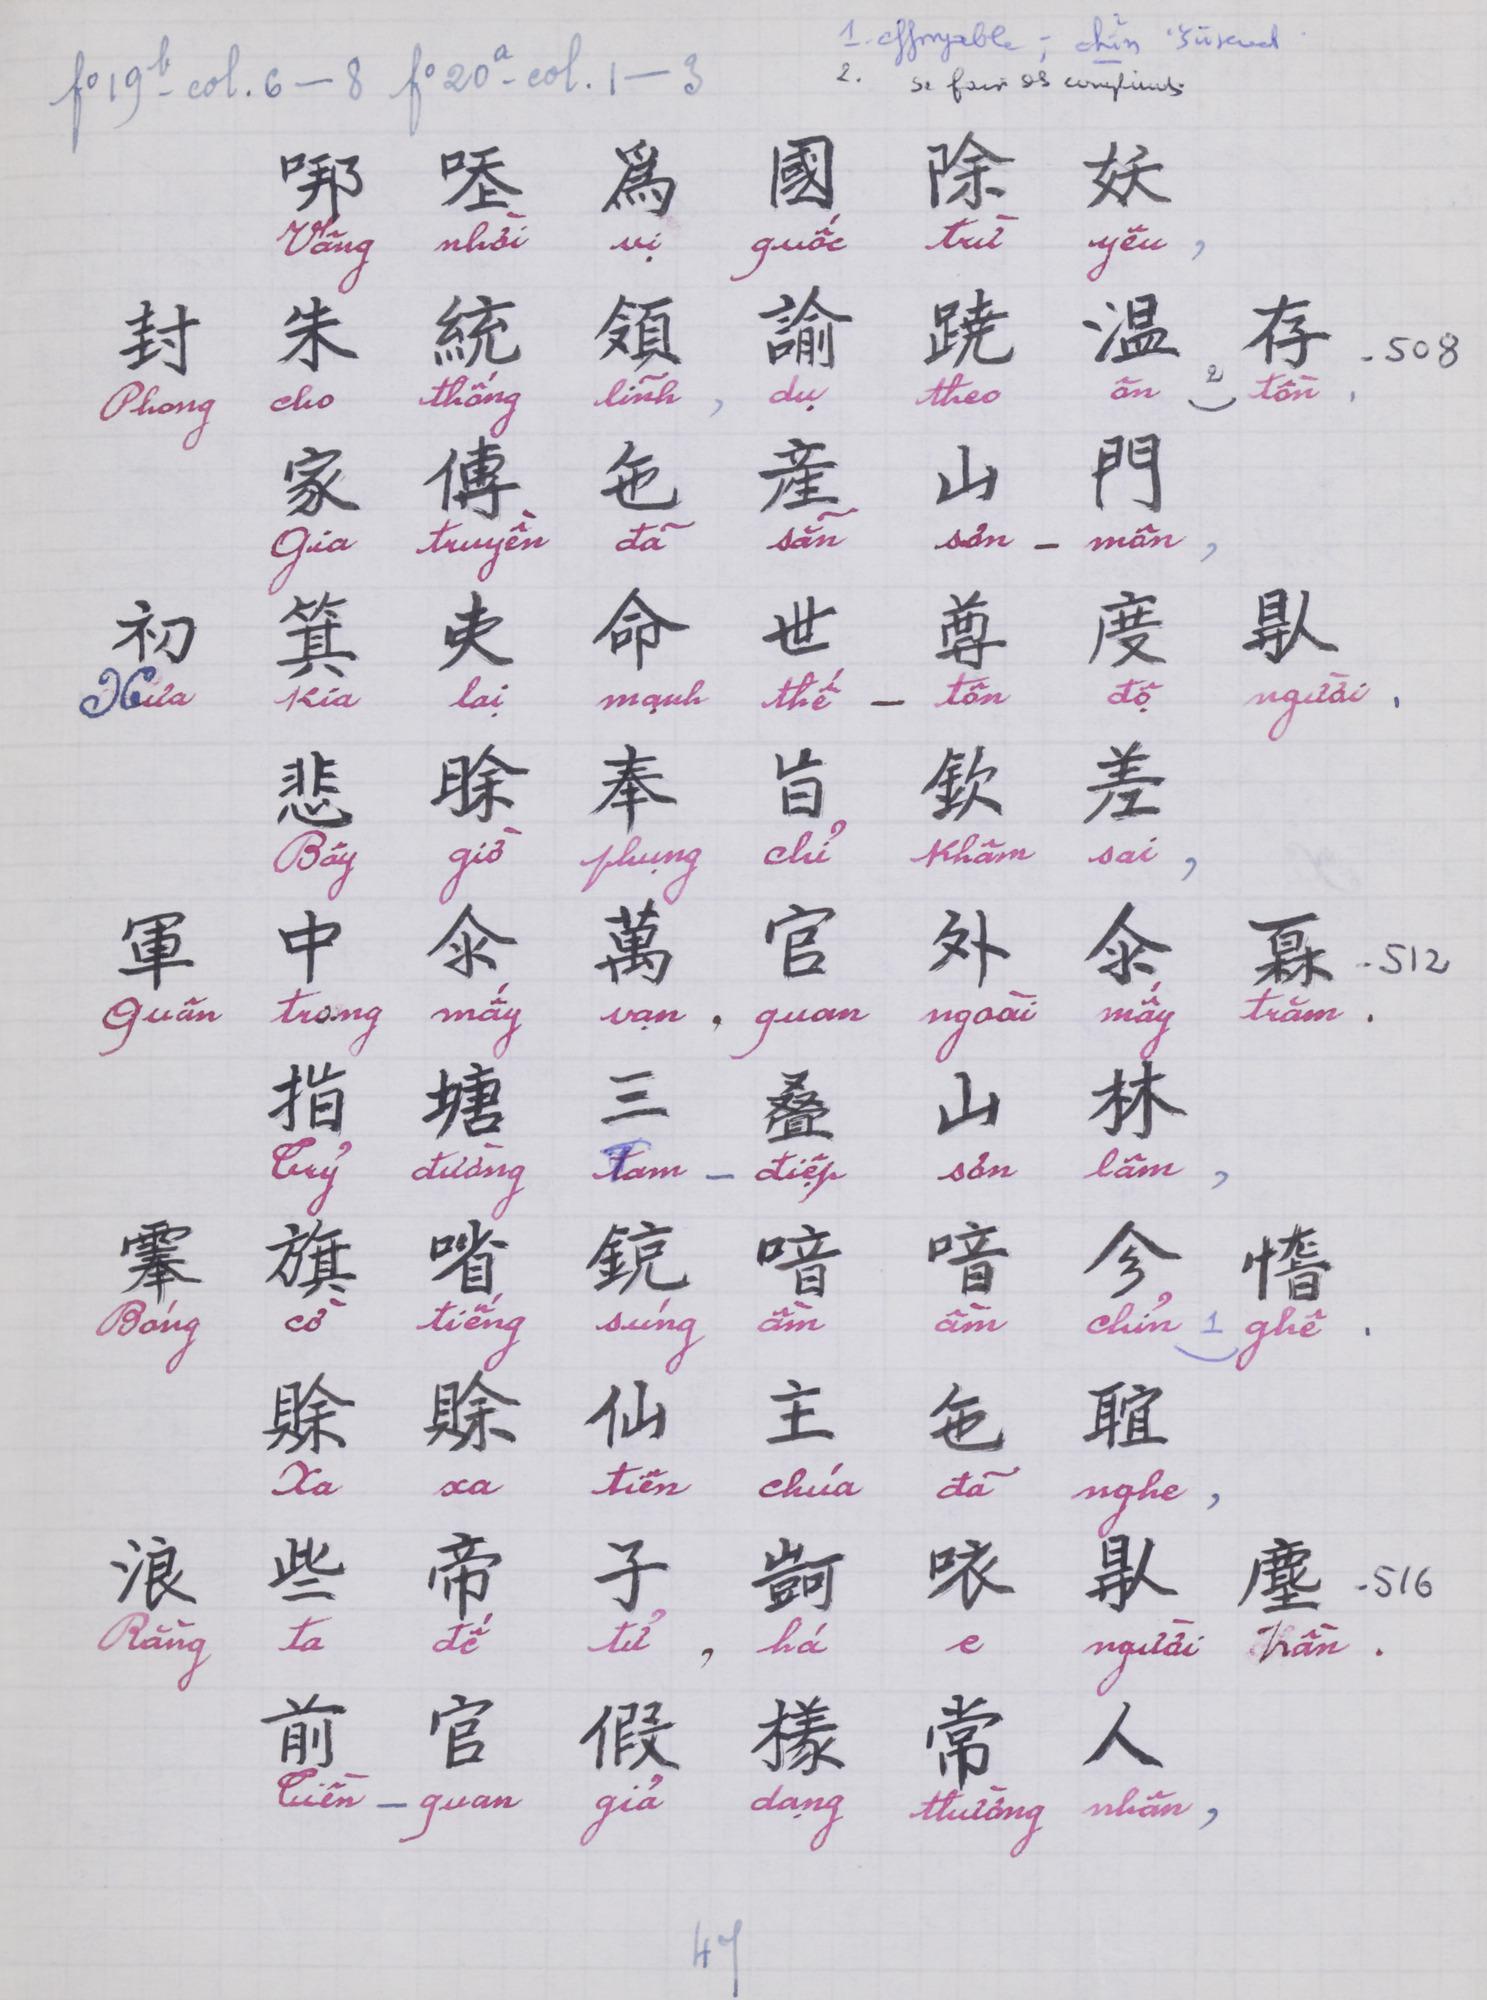 fº19b- col. 6 — 8 fº20a- col. 1 — 3
1. effroyable ; chỉn
2. se faire
哪 㗂 爲 國 除 妖
Vâng nhời vị quốc trừ yêu ,
封 朱 統 領 諭 蹺 温 存 - 508
Phong cho thống lĩnh , dụ theo ôn 2 tồn .
家 傳 㐌 産 山 門
Gia truyền đã sẵn sơn - môn ,
初 箕 吏 命 世 尊 度 𠊛
Xưa kia lại mạnh thế - tôn độ người .
悲 𣇞 奉 旨 欽 差
Bây giờ phụng chỉ khâm sai ,
軍 中 氽 萬 官 外 氽 𤾓 - 512
Quân trong mấy vạn . quan ngoài mấy trăm .
指 塘 三 叠 山 林
Trỷ đường Tam - điệp sơn lâm ,
䨜 旗 㗂 銃 喑 喑 㐱 𢠐
Bóng cờ tiếng súng ầm ầm chỉn 1 ghê .
賒 賒 仙 主 㐌 𦖑
Xa xa tiên chúa đã nghe ,
浪 些 帝 子 㰤 𠲖 𠊛 塵 - 516
Rằng ta đế tử , há e người trần .
前 官 假 樣 常 人
Tiền - quan giả dạng thường nhân ,
47